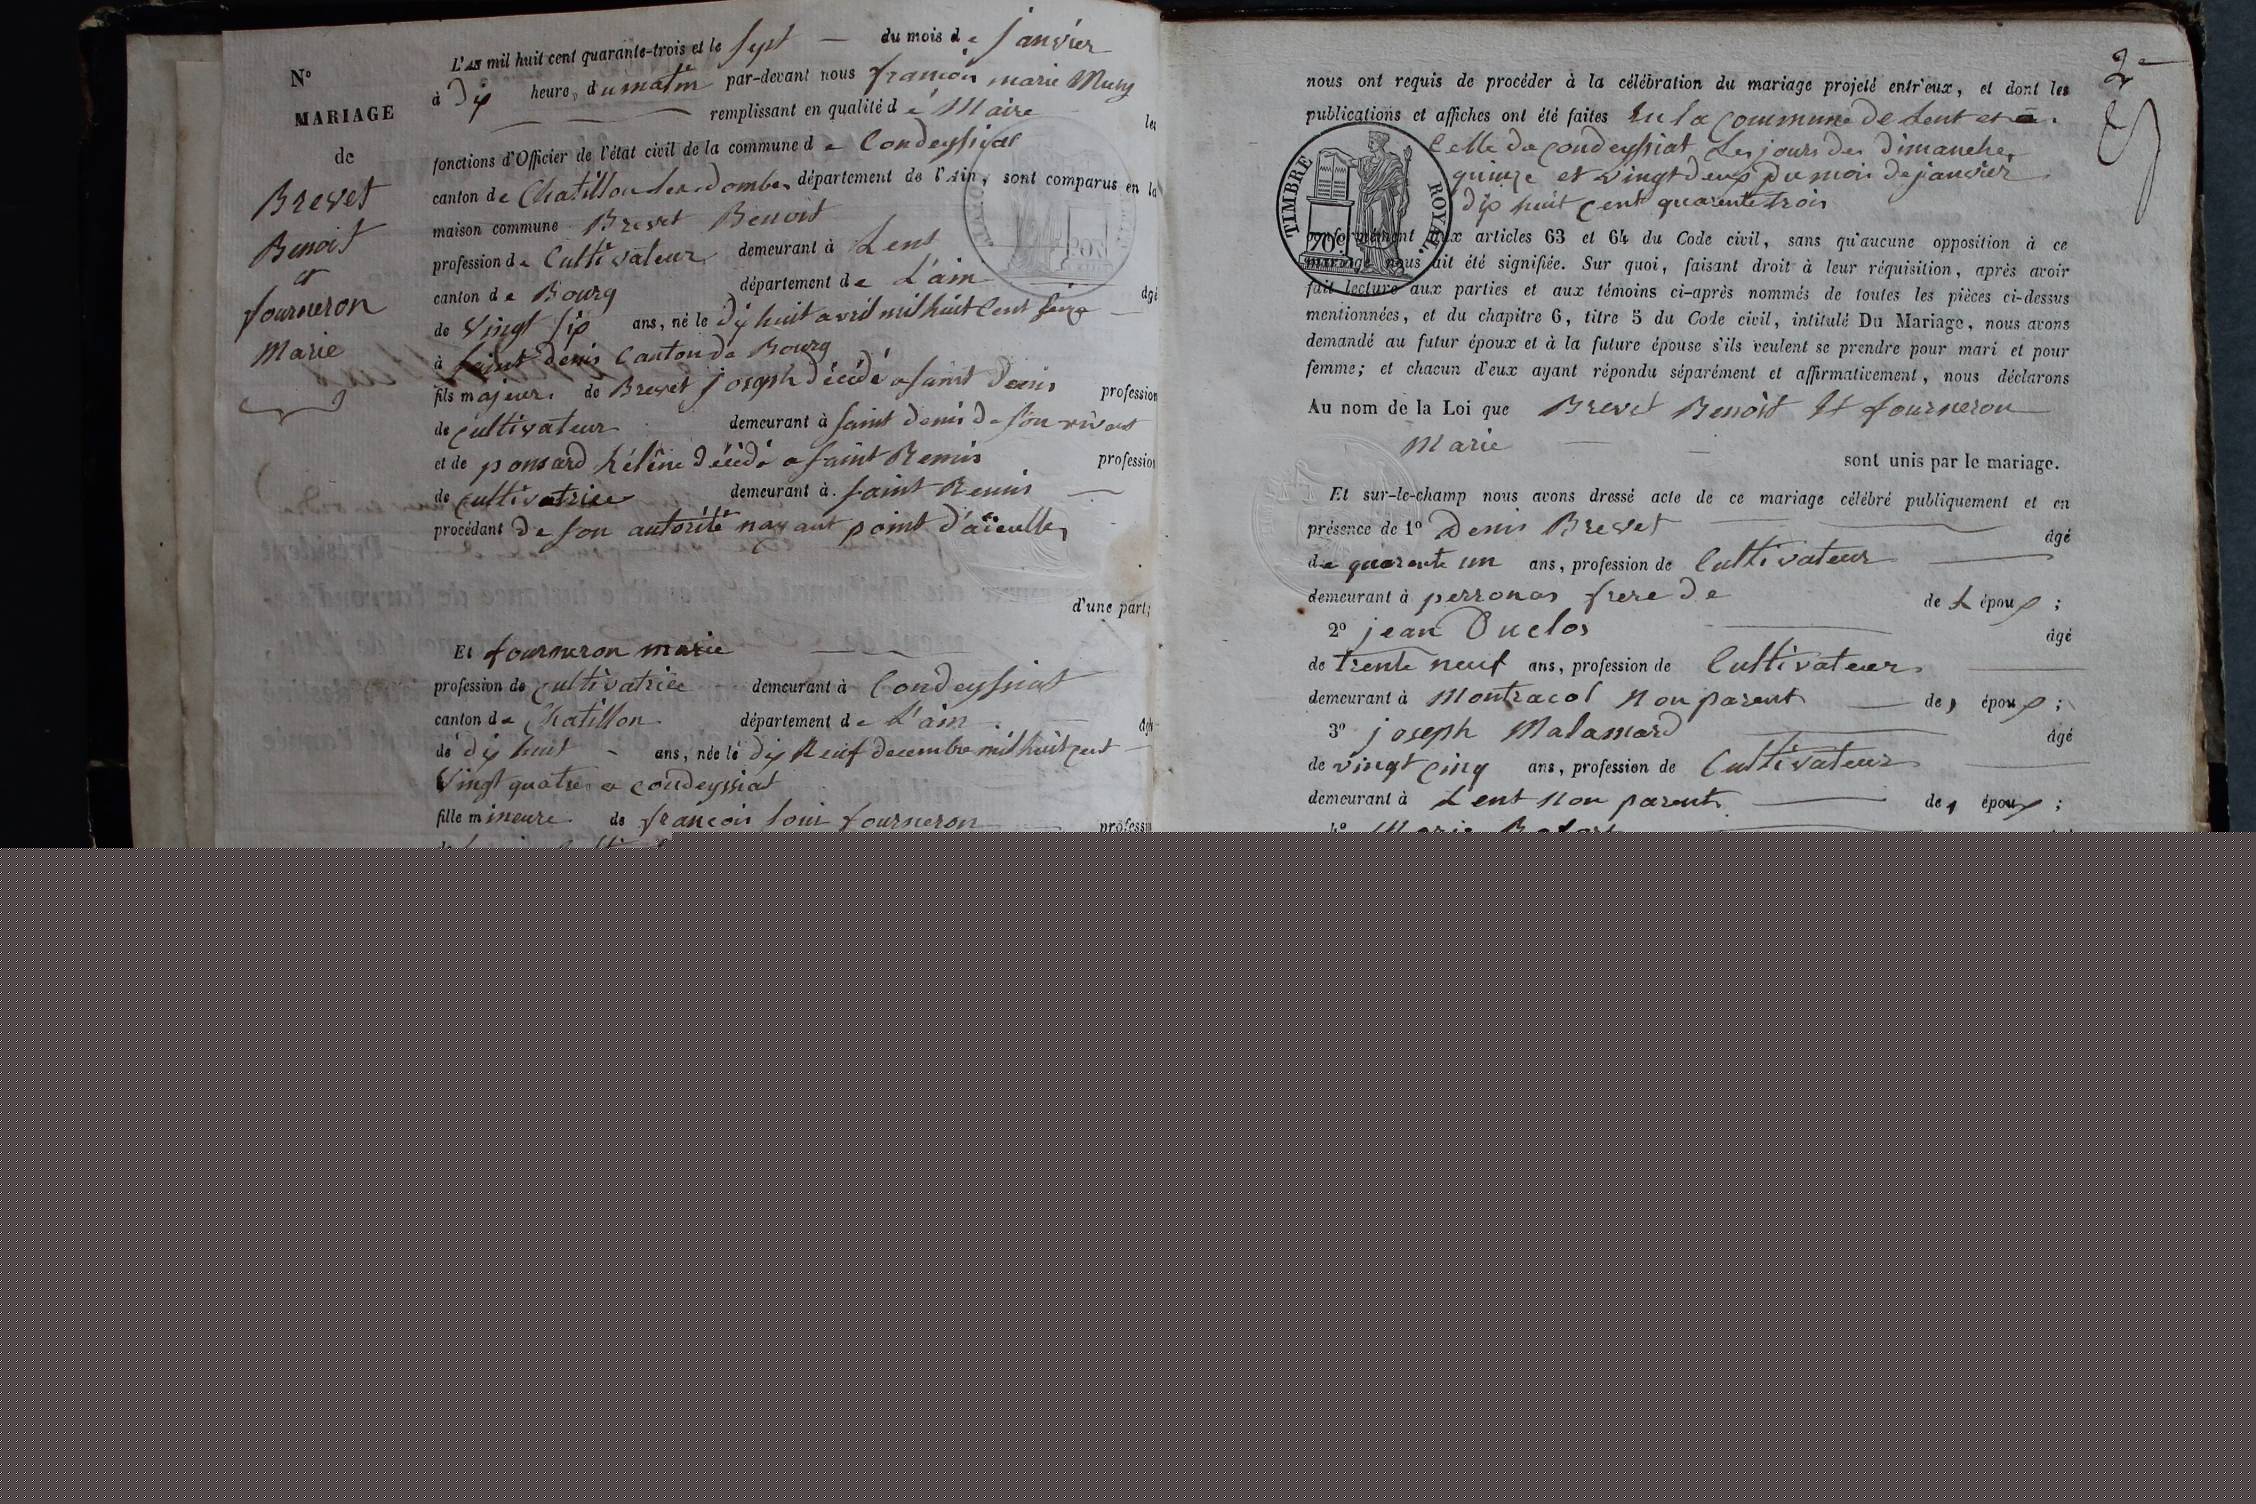 N°
MARIAGE
de
Brevet
Benoit
et
fourneron
Marie
L'an mil huit cent quarante-trois et le sept du mois de janvier
à Dix heures du matin par-devant nous françois marie
remplissant en qualité de Maire les
fonctions d'Officier de l'état civil de la commune de Condeyssiat
canton de Chatillon les dombes département de l'Ain, sont comparus en la
maison commune Brevet Benoit
profession de Cultivateur demeurant à Lent
canton de Bourg département de L'ain âgé
de Vingt six ans, né le dix huit avril mil huit Cent seize
à saint denis Canton de Bourg
fils majeur de Brevet joseph décédé a saint Denis profession
de cultivateur demeurant à saint denis de son vivant
et de ponsard hélène décédé a saint Remis profession
de cultivatrice demeurant à saint Remis
procédant De son autorité nayant point d'aïeulles
d'une part;
Et fourneron marie
profession de cultivatrice demeurant à Condeyssiat
canton de Chatillon département de L'ain âgée
de dix huit ans, née le dix Neuf decembre mil huit cent
Vingt quatre a condeyssiat
fille mineure de françois fourneron profession
2
nous ont requis de procéder à la célébration du mariage projeté entr'eux, et dont les
publications et affiches ont été faites En la Commune de Lent et à
Celle de condeyssiat Les jours des Dimanches
quinze et vingt deux Du mois de janvier
dix huit cent quarente trois
TIMBRE ROYAL.
70 c.
conformément aux articles 63 et 64 du Code civil, sans qu'aucune opposition à ce
mariage nous ait été signifiée. Sur quoi, faisant droit à leur réquisition, après avoir
fait lecture aux parties et aux témoins ci-après nommés de toutes les pièces ci-dessus
mentionnées, et du chapitre 6, titre 5 du Code civil, intitulé Du Mariage, nous avons
demandé au futur époux et à la future épouse s'ils veulent se prendre pour mari et pour
femme; et chacun d'eux ayant répondu séparément et affirmativement, nous déclarons
Au nom de la Loi que Brevet Benoit Et fourneron
Marie
sont unis par le mariage.
Et sur-le-champ nous avons dressé acte de ce mariage célébré publiquement et en
présence de 1° Denis Brevet âgé
de quarente un ans, profession de Cultivateur
demeurant à perronas frere De de L époux ;
2° jean Duclos âgé
de trente neuf ans, profession de Cultivateur
demeurant à Montracol Non parent de, époux ;
3° joseph Malamard âgé
de vingt cinq ans, profession de Cultivateur
demeurant à Lent Non parent de, époux ;
4° Marie